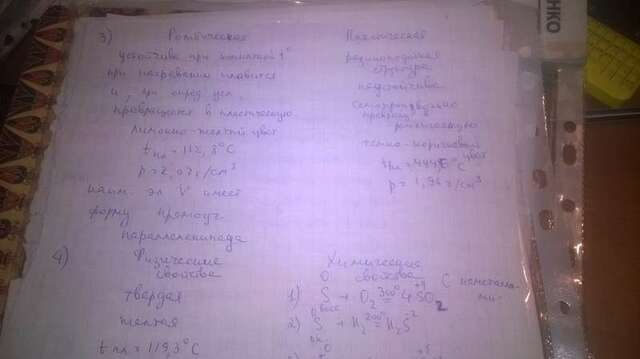 3) Ромбическая
устойчива при комнатной t°
при нагревании плавится
и, при опред. усл.
превращается в пластическую
лимонно-желтый цвет
tпл = 112,8°C
ρ = 2,07 г/см³
наим. эл. V имеет
форму прямоуг.
параллелепипеда
Пластическая
резиноподобная
структура
неустойчива
самопроизвольно
превращ. в
ромбическую
темно-коричневый
цвет
°C
ρ = 1,96 г/см³
4) Физические
свойства
твердая
желтая
tпл = 119,3°C
Химические
свойства
С неметалла-
ми.
1) S + O₂ = SO₂
2) S + H₂ = H₂S
НКО